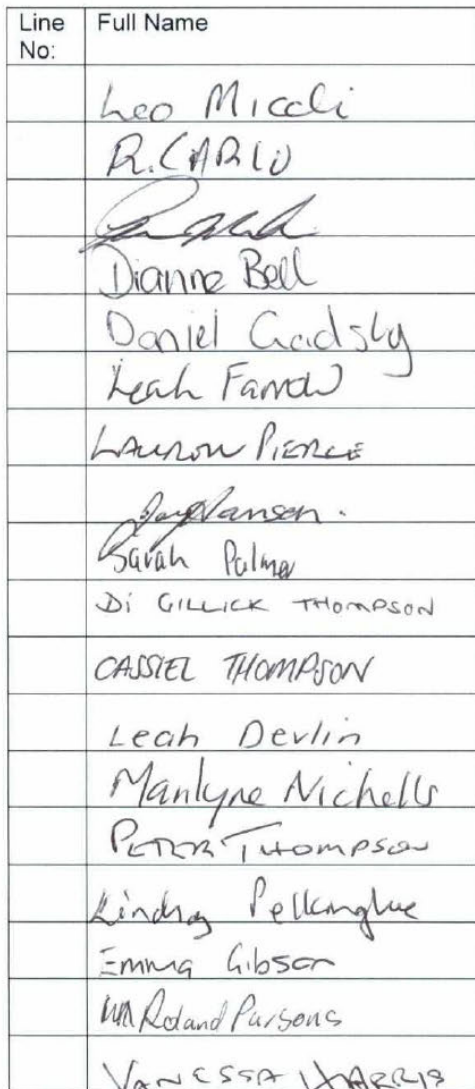 Line No:
Full Name
Leo Miceli
R. CARLO
Dianne Bell
Daniel Gadsby
Leah Farrow
LAUREN PIERCE
Hansen.
Sarah Palmer
Di GILLICK THOMPSON
CASSIEL THOMPSON
Leah Devlin
Marilyne Nicholls
PETER THOMPSON
Lindsay
Emma Gibson
Roland Parsons
VANESSA HARRIS